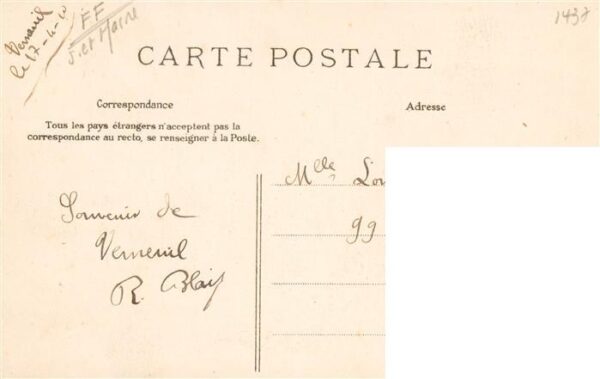 Verneuil
le 17-4-10
FF
S. et Marne
1437
CARTE POSTALE
Correspondance
Adresse
Tous les pays étrangers n'acceptent pas la
correspondance au recto, se renseigner à la Poste.
Mlle
99
Souvenir de
Verneuil
R.